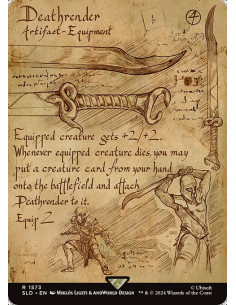 Deathrender 4
Artifact - Equipment
Equipped creature gets +2/+2.
Whenever equipped creature dies, you may
put a creature card from your hand
onto the battlefield and attach
Deathrender to it.
Equip 2
R 1573
SLD • EN Miklós Ligeti & AndWorld Design
© Ubisoft
™ & © 2024 Wizards of the Coast